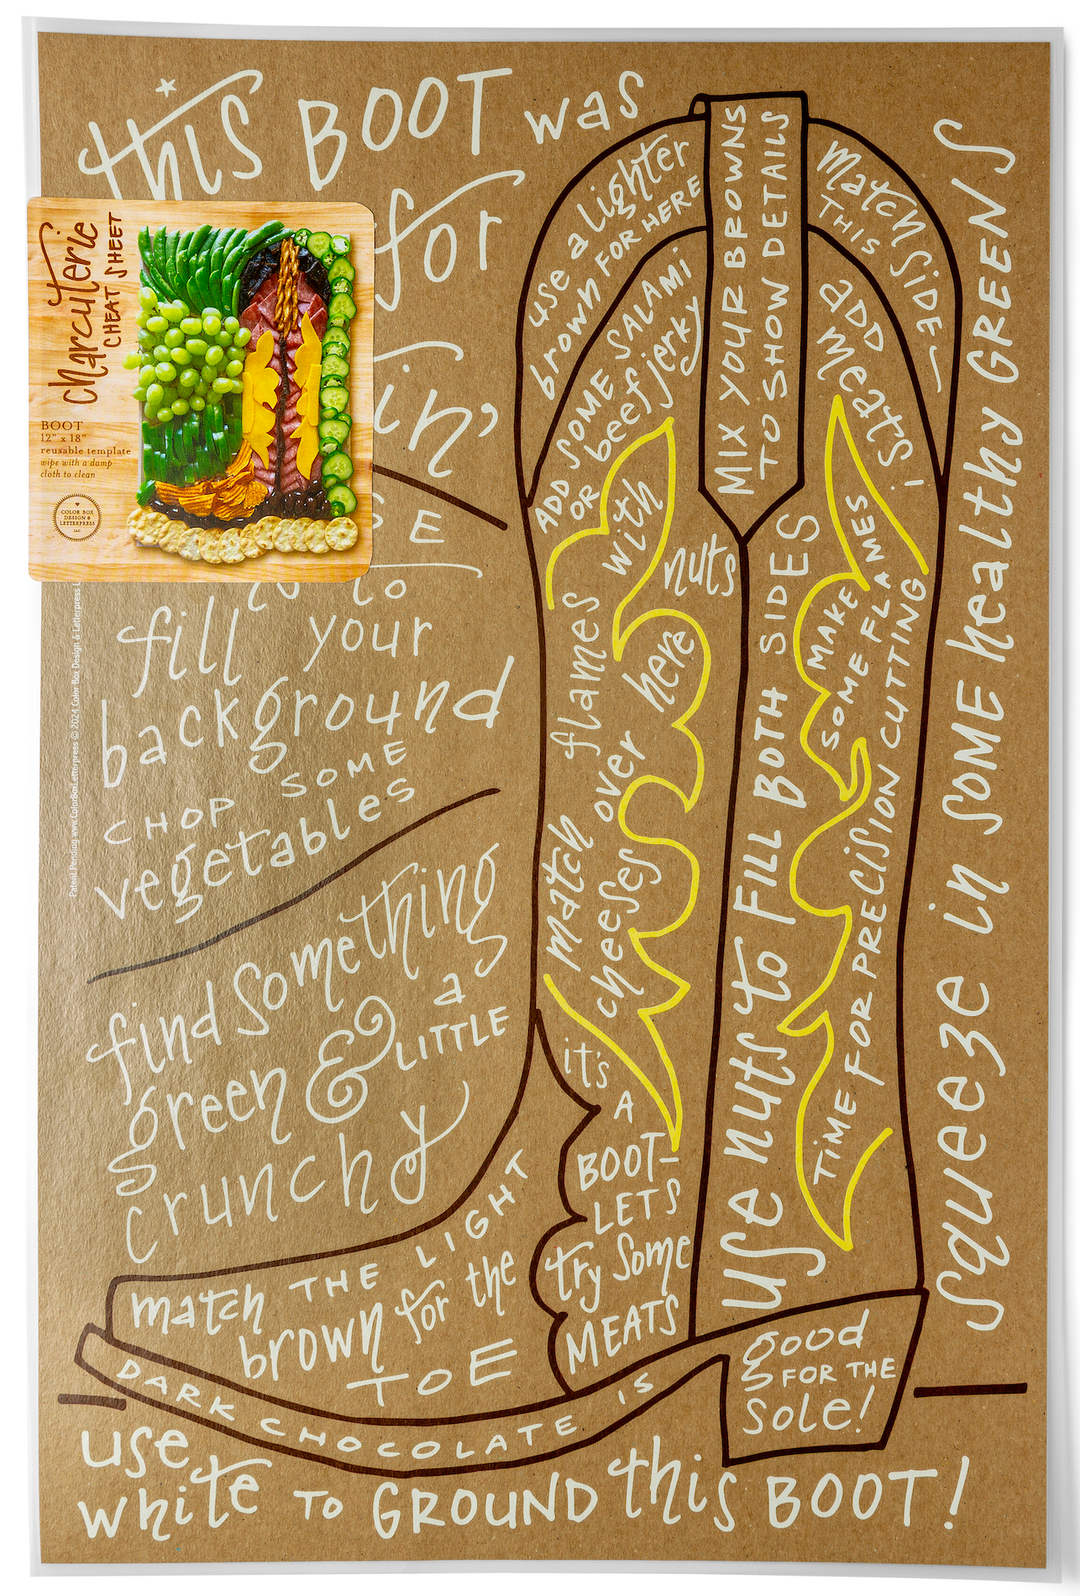 this BOOT was
for
in,
E
to
fill your
background
CHOP SOME
vegetables
find something
green & a
LITTLE
crunchy
charcuterie
CHEAT SHEET
BOOT
12" x 18"
reusable template
wipe with a damp
cloth to clean
COLOR BOX
DESIGN &
LETTERPRESS
LLC
Patent Pending www.ColorBoxLetterpress © 2024 Color Box Design & Letterpress L
use a lighter
brown FOR HERE
MIX YOUR BROWNS
TO SHOW DETAILS
match SIDE
THIS
ADD SOME SALAMI
OR beef jerky
ADD
meats!
flames with
nuts
match over here
cheeses
USE nuts to FILL BOTH SIDES
MAKE
SOME FLAMES
TIME FOR PRECISION CUTTING
squeeze in SOME healthy GREENS
it's
A
BOOT-
LETS
try Some
MEATS
match THE LIGHT
brown for the
TOE
DARK CHOCOLATE IS
good
FOR THE
sole!
use
white TO GROUND this BOOT!